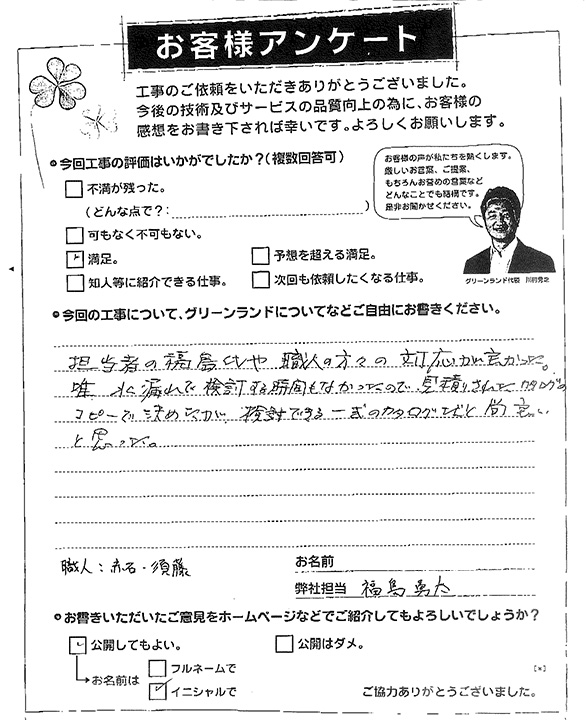 お客様アンケート
工事のご依頼をいただきありがとうございました。
今後の技術及びサービスの品質向上の為に、お客様の
感想をお書き下されば幸いです。よろしくお願いします。
今回工事の評価はいかがでしたか?(複数回答可)
不満が残った。
(どんな点で?: )
可もなく不可もない。
満足。
予想を超える満足。
知人等に紹介できる仕事。
次回も依頼したくなる仕事。
お客様の声が私たちを熱くします。
厳しいお言葉、ご提案、
もちろんお褒めの言葉など
どんなことでも結構です。
是非お聞かせください。
グリーンランド代表
今回の工事について、グリーンランドについてなどご自由にお書きください。
担当者の福島さんや職人の方々の対応が良かった。
唯 水漏れで検討する時間もなかったので、見積りされたカタログの
コピーで決めたが、検討できる一式のカタログだと尚良い
と思った。
職人:赤石・須藤
お名前
弊社担当 福島勇太
お書きいただいたご意見をホームページなどでご紹介してもよろしいでしょうか?
公開してもよい。
公開はダメ。
お名前は
フルネームで
イニシャルで
ご協力ありがとうございました。